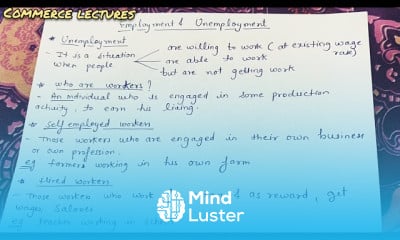 COMMERCE LECTURES
Employment & Unemployment
* Unemployment
- It is a situation when people
are willing to work (at existing wage rate)
are able to work
but are not getting work
* who are workers?
- An individual who is engaged in some production
activity, to earn his living.
* Self employed workers
- Those workers who are engaged in their own business
or own profession.
eg farmers working in his own farm
* Hired workers
Those workers who work as reward, get
wages, salaries
eg teacher working in
Mind
Luster